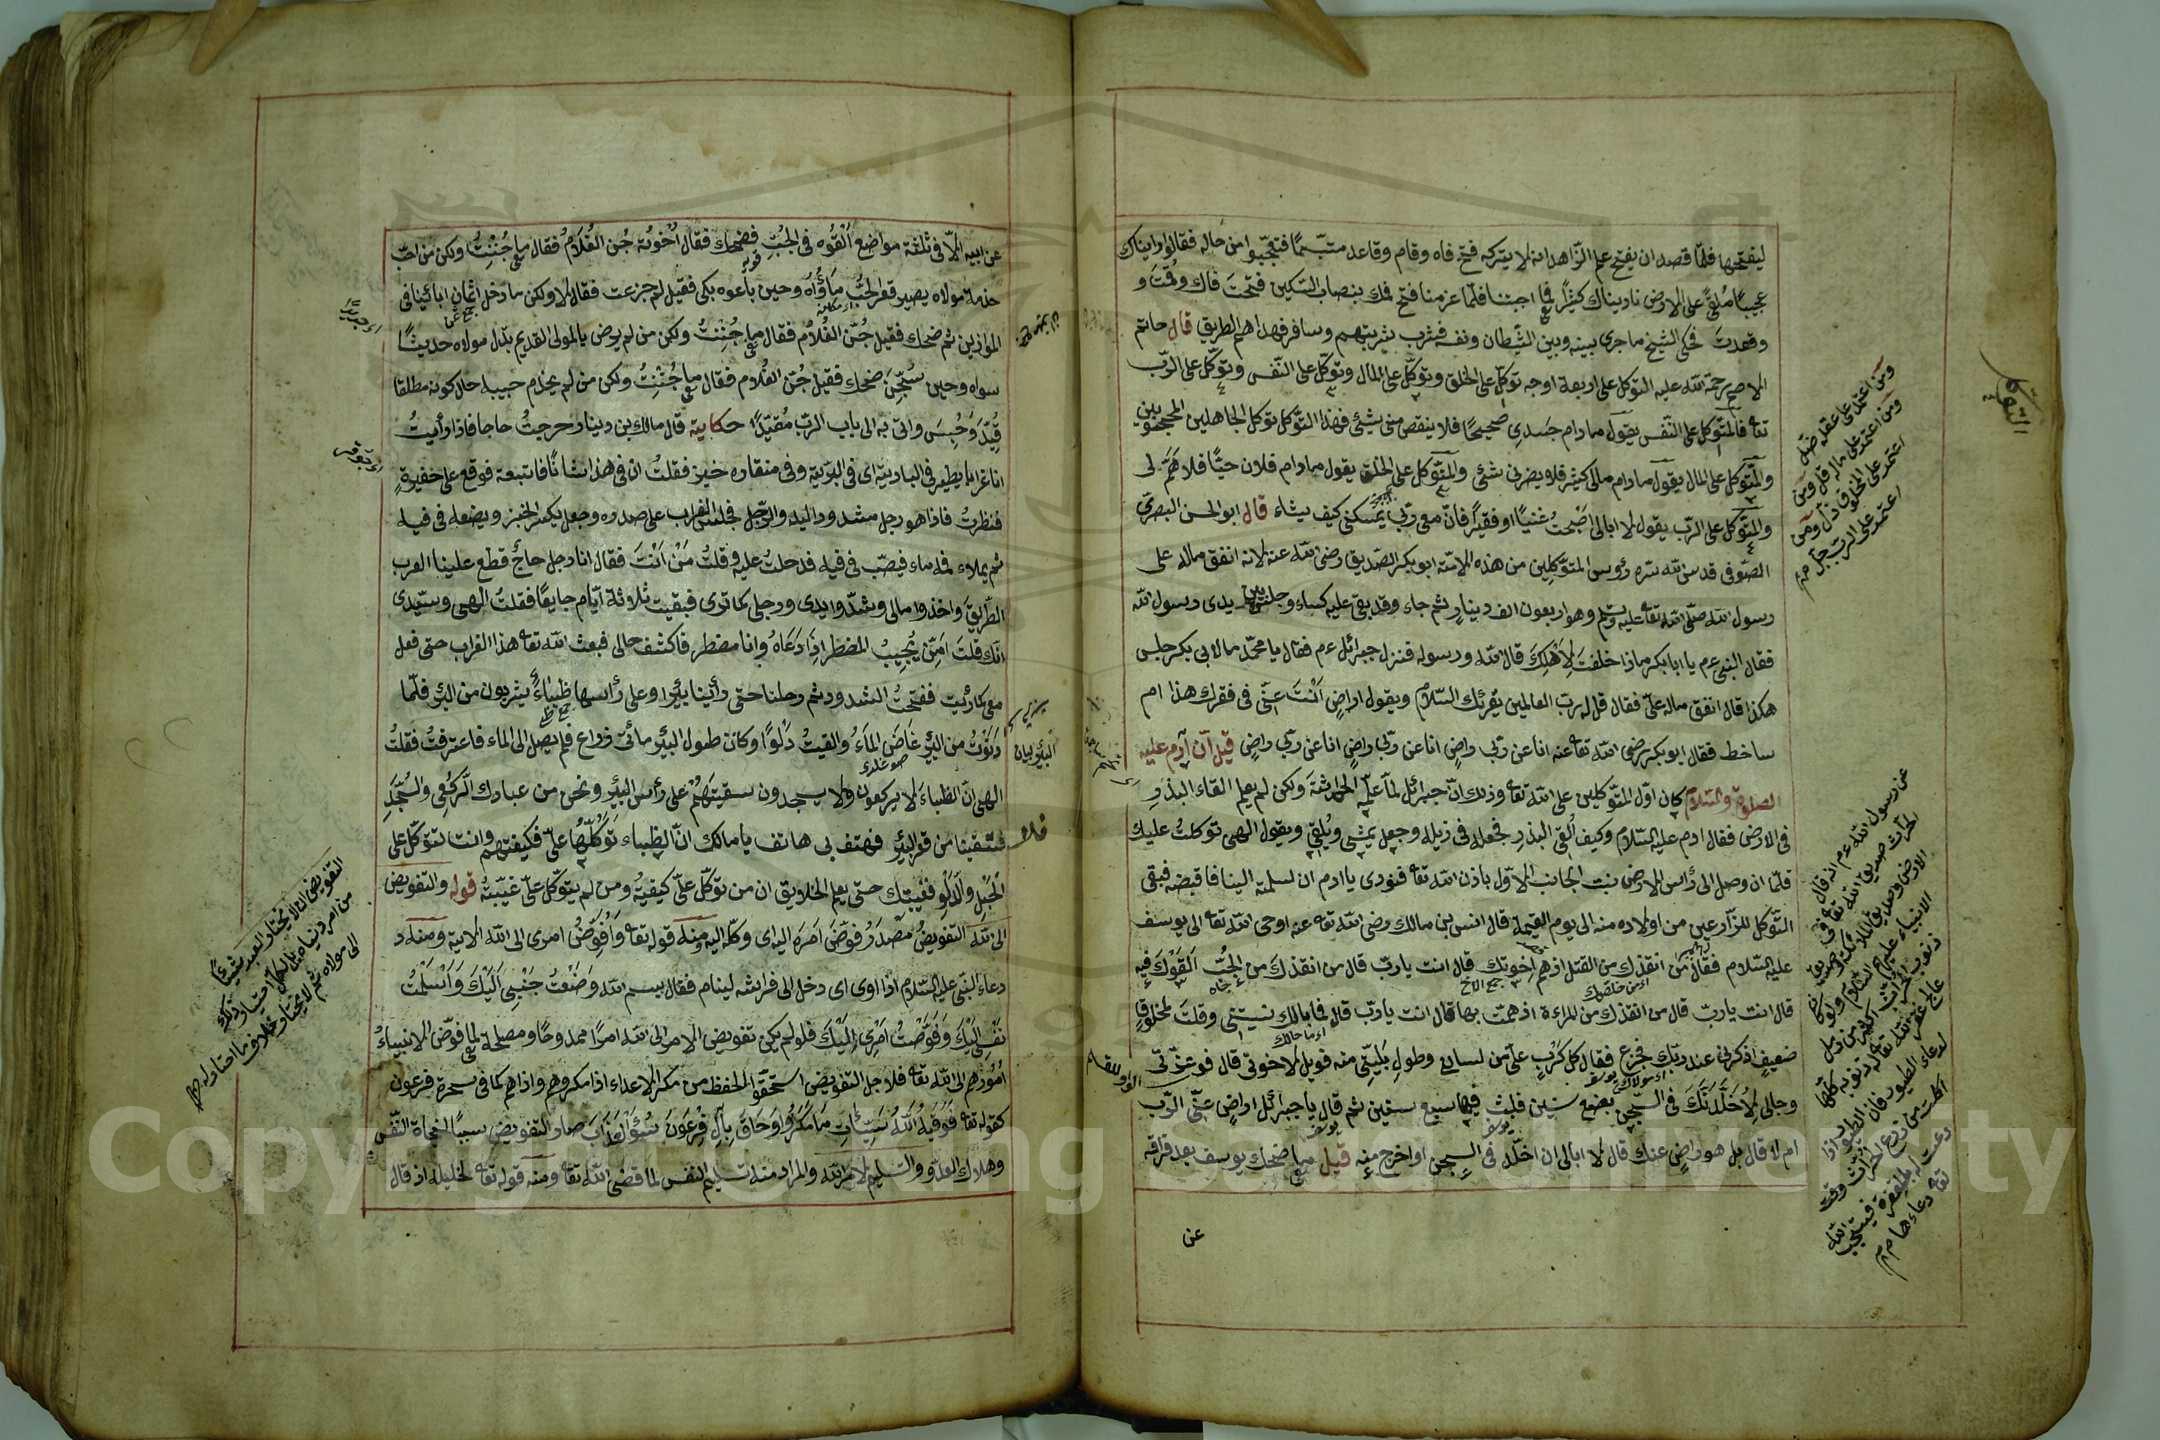 ليفتحها فلمّا قصد ان يفتح علم الزّاهد انه لا يتركه فتح فاه وقام وقاعد متبسّمًا فتعجّبوا من حاله فقالوا رايناك
عجيبًا مُلقًى على الارض ناديناك كثيرًا فما اجبتنا فلمّا عزمنا فتح فمك بنصاب السّكين فتحتَ فاك وقُمْتَ و
وقعدتَ فحكى الشيخ ماجرى بينه وبين الشّيطان ونفسه فشرب شربتهم وسافر فهذا هم الطريق قال حاتم
الاصم رحمة الله عليه التوكل على اربعة اوجه توكّل على الخلق وتوكّل على المال وتوكّل على النّفس وتوكّل على الرّب
تعالى فالمتوكل على النّفس يقول مادام جَسَدِى صحيحًا فلا ينقص منى شئ فهذا التّوكل توكل الجاهلين المحجوبين
والمتوكل على المال يقول مادام مالى كثير فلا يضرنى شئ والمتوكل على الخلق يقول مادام فلان حيًّا فلا هَمَّ لى
والمتوكل على الرّب يقول لا ابالى اصْبحتُ غنيًا او فقيرًا فانّ معى ربّى يُمْسكنى كيف يشاء قال ابو الحسن البصرىّ
الصّوفى قدس الله سره رؤوس المتوكلين من هذه الامّة ابو بكر الصّديق رضى الله عنه لانه انفق ماله على
رسول الله صلّى الله تعالى عليه وسلم وهو اربعون الف دينار ثم جاء وقد بقى عليه كساء وجلس بين يدى رسول الله
فقال النبى عم يا ابا بكر ماذا خلفتَ لِاَهْلِكَ قال الله ورسوله فنزل جبرائل عم فقال يا محمّد مال ابى بكر جلس
هكذا قال انفق ماله علىّ فقال قل له ربّ العالمين يُقرئك السّلام ويقول اراضٍ اَنْتَ عنّى فى فقرك هذا ام
ساخط فقال ابو بكر رضى الله تعالى عنه انا عن ربّى راضٍ انا عن ربّى راضٍ انا عن ربّى راضٍ قيل انّ آدم عليه
الصلوة والسّلام كان اوّل المتوكلين على الله تعالى وذلك انّ جبرائل لمّا علّمه الحراثة ولكن لم يعلم القاء البذر
فى الارض فقال ادم عليه السّلام وكيف اُلقى البذر فجعله فى زيله وجعل يمشى ويُلقى ويقول الهى توكلتُ عليك
فلمّا ان وصل الى رأس الارض نبت الجانب الاوّل باذن الله تعالى فنودى يا ادم ان لسلمته الينا فاقبضه فبقى
التّوكل للزّارعين من اولاده منه الى يوم القيمة قال انس بن مالك رضى الله تعالى عنه اوحى الله تعالى الى يوسف
عليه السّلام فقال مَن انقذك من القتل اذ هم اخوتك قال انت يا ربّ قال من انقذك من الجبّ اَلقَوْكَ فيه
قال انت يا ربّ قال من انقذك من المراءة اذ همت بها قال انت يا ربّ قال فما بالك نسيتنى وقلتَ لمخلوقٍ
ضعيفٍ اذكرنى عند ربّك فجزع فقال كل كَرْبٍ علىّ من لسانى وطول بَلِيّتى منه فويل لاخوتى قال فوعزّتى
وجالى لِاُخَلّدَنَّكَ فى السّجن بضع سنين فلبث فيها سبع سنين ثم قال يا جبرائل اراضٍ عنّى الرّب
ام لا قال بل هو راضٍ عنك قال لا ابالى ان اخلّد فى السجن او اخرج منه قيل مما ضحك يوسف بعد فراقه
عن
ومن اعتمد على عقله ضلّ
ومن اعتمد على ماله قل ومن
اعتمد على المخلوق ذلّ ومن
اعتمد على الربّ جلّ
عن رسول الله عم انه قال
عن ابيه الّا فى ثلثة مواضع اَلقُوْه فى الجُبّ فضحك فقال اُخْوته جُن الغُلَامُ فقال ما جُنِنْتُ ولكن من احبّ
خدمة مولاه يصير قعر الجُبّ مَأْوٰاهُ وحين باعوه بكى فقيل لم جزعت فقال لا ولكن ما دخل اثمان ابائنا فى
الموازين ثم ضحك فقيل جُنّ الغُلامُ فقال ما جُنِنتُ ولكن من لم يرض بالمولى القديم بدّل مولاه حديثًا
سواه وحين سُجِنَ ضحك فقيل جُنّ الغُلام فقال ما جُنِنْتُ ولكن من لم يخدم حبيبه حال كونه مطلقا
قُيِّدَ وَحُبِسَ واتى به الى باب الربّ مُقيّدًا حكاية قال مالك بن دينار خرجتُ حاجا فاذا رأيتُ
انا غرابا يطير فى البادية اى فى البرّية وفى منقاره خبز فقلتُ انّ فى هذا شانًا فاتبعته فوقع على حفيرة
فنظرتُ فاذا هو رجل مشدود اليد والرّجل فجلس الغراب على صدره وجعل يكسر الخبز ويضعه فى فيه
ثم يملاء فمه ماء فيصبّ فى فيه فدخلتُ عليه وقلتُ مَنْ اَنْتَ فقال انا رجل حاجّ قطع علينا العرب
الطّريقَ واخذوا مالى وشدّوا يدى ورجلى كما ترى فبقيت ثلاثة ايّام جايعًا فقلتُ الهى وسيّدى
انّك قلتَ اَمّنْ يُجِيبُ المضطرّ اِذَا دَعَاهُ وانا مضطر فاكشف حالى فبعث الله تعالى هذا الغراب حتى فعل
معى كما رأيت ففتحتُ الشد ودتم رحلنا حتى رأينا بئرًا وعلى رأسها ظِبٰاءً يشربون من البئر فلمّا
دَنَوْتُ من البئر غَاضَ المَاءُ والقيتُ دَلْوًا وكان طول البئر مائتى ذراع فلم يصل الى الماء فاعترفتُ فقلتُ
الهى انّ الظباءَ لا يركعون ولا يسجدون سقيتَهُمْ على رأس البئر ونحن من عبادك الرّكّعِ والسُّجّدِ
فتسقينا من قعر البئر فهتف بى هاتف يا مالك انّ الظباء تَوَكّلَهُا علىّ فكيفتهم وانت تتوكّل على
الحَبْلِ والدَّلْوِ فغيبتك حتى يعلم الخلايق ان من توكّل علىّ كيفيّة ومن لم يتوكّل علىّ غيبته قوله والتفويض
الى الله التفويضُ مَصْدَرُ فَوّضَ اَمْرَه اليه اى وكله اليه ومنه قوله تعالى وَاُفَوّضُ امرى الى الله الاية ومنه د
دعاء النّبى عليه السّلام اذا اوى اى دخل الى فراشه لينام فقال بسم الله وضَعْتُ جَنْبِى اِلَيْكَ وَاَسْلَمْتُ
نَفْسِى اِلَيْكَ وَفَوّضْتُ اَمْرِى اِلَيْكَ فلو لم يكن تفويض الامر الى الله امرًا ممدوحًا ومصلحة لما فوّض الانبياءُ
اُمُورَهم الى الله تعالى فلاجل التفويض استحقّوا الحفظ من مكر الاعداء اذا مكروهم واذاهم كما فى سحرة فرعون
كقوله تعالى فَوَقٰيهُ اللهُ سَيِّئَاتِ مَا مَكَرُوا وَحَاقَ بِاٰلِ فِرْعَوْنَ سُوْءُ العَذَاب صار التفويض سببًا لنجاة النّفس
وهلاك العدوّ والتسليم لامر الله والمراد منه تسليم النفس لما قضى الله تعالى ومنه قوله تعالى لخليله اذ قال
التفويض ان لا يختار العبد شيئًا
من امر دنياه بل يكل اختيار ذلك
الى مولاه ثم لا يختار خلاف ما اختار له
Copyright © King Saud University